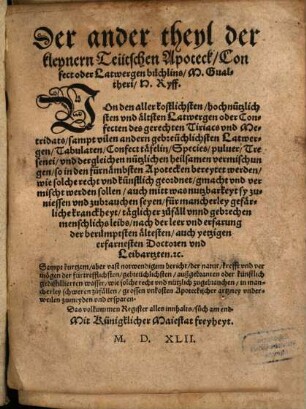 Der ander theyl der
kleynern Teütschen Apoteck/ Con
fect oder Latwergen büchlins/ M. Gual-
theri/ H. Ryff.
VOn den aller kostlichsten/ hochnützlich
sten vnd ältsten Latwergen oder Con-
fecten des gerechten Tiriacs vnd Me-
tridats/ sampt vilen andern gebreüchlichsten Latwer-
gen/ Tabulaten/ Confect täfelin/ Species/ puluer/ Tre
senei/ vnd dergleichen nützlichen heilsamen vermischun
gen/ so in den fürnämbsten Apotecken bereytet werden/
wie solcht recht vnd künstlich geordnet/ gmacht vnd ver
mischt werden sollen/ auch mit was nutzbarkeyt sy zu
niessen vnd zubrauchen seyen/ für mancherley gefär-
liche kranckheyt/ täglicher zůfäll vnnd gebrechen
menschlichs leibs/ nach der leer vnd erfarung
der berümptsten ältesten/ auch yetzigen
erfarnesten Doctoren vnd
Leibartzten. ec.
Sampt kurtzem/ aber vast notwendigem bericht/ der natur/ krefft vnd ver
mögen der fürtrefflichsten/ gebreüchlichsten/ außgebranten oder künstlich
gedistillierten wässer/ wie solche recht vnd nützlich zugebrauchen/ in man-
cherley schweren zůfällen/ grossen vnkosten Apoteckischer artzney vnder-
weilen zumeyden vnd ersparen.
Das volkummen Register alles innhalts/ sůch am end
Mit Künigklicher Maiestat freyheyt.
M. D. XLII.